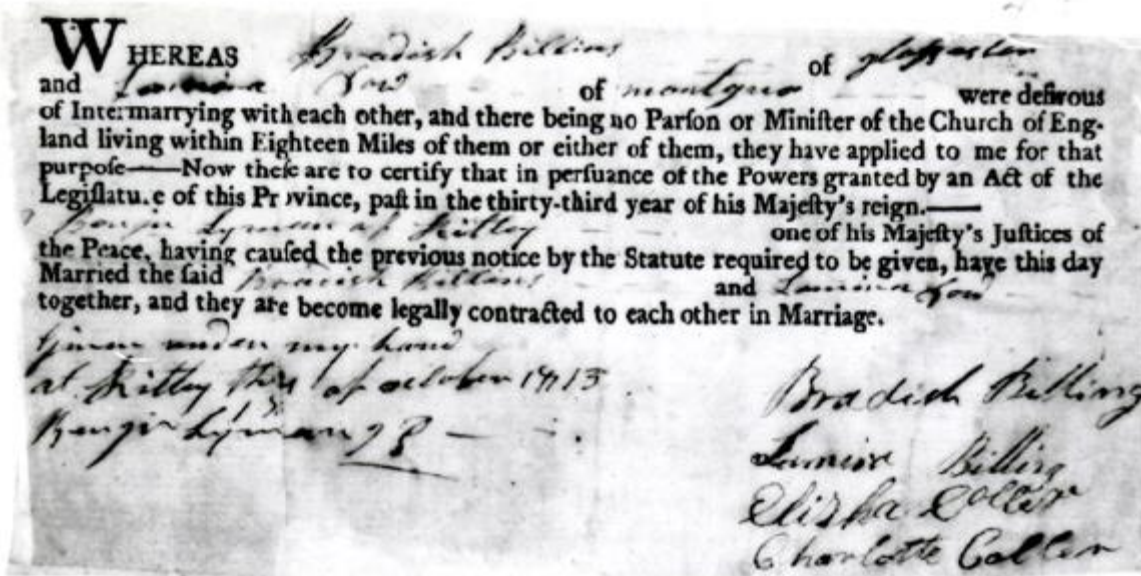 WHEREAS Bradish Billins of
and Lamira Low of were deſirous
of Intermarrying with each other, and there being no Parſon or Miniſter of the Church of Eng-
land living within Eighteen Miles of them or either of them, they have applied to me for that
purpoſe——Now theſe are to certify that in perſuance of the Powers granted by an Act of the
Legiſlature of this Province, paſt in the thirty-third year of his Majeſty's reign.——
Benjn Lyman of Kitley one of his Majeſty's Juſtices of
the Peace, having cauſed the previous notice by the Statute required to be given, have this day
Married the ſaid Bradish Billins and Lamira Low
together, and they are become legally contracted to each other in Marriage.
Given under my hand
at Kitley this of october 1813
Benjn Lyman J P
Bradish Billing
Lamira Billing
Elisha Coller
Charlotte Coller